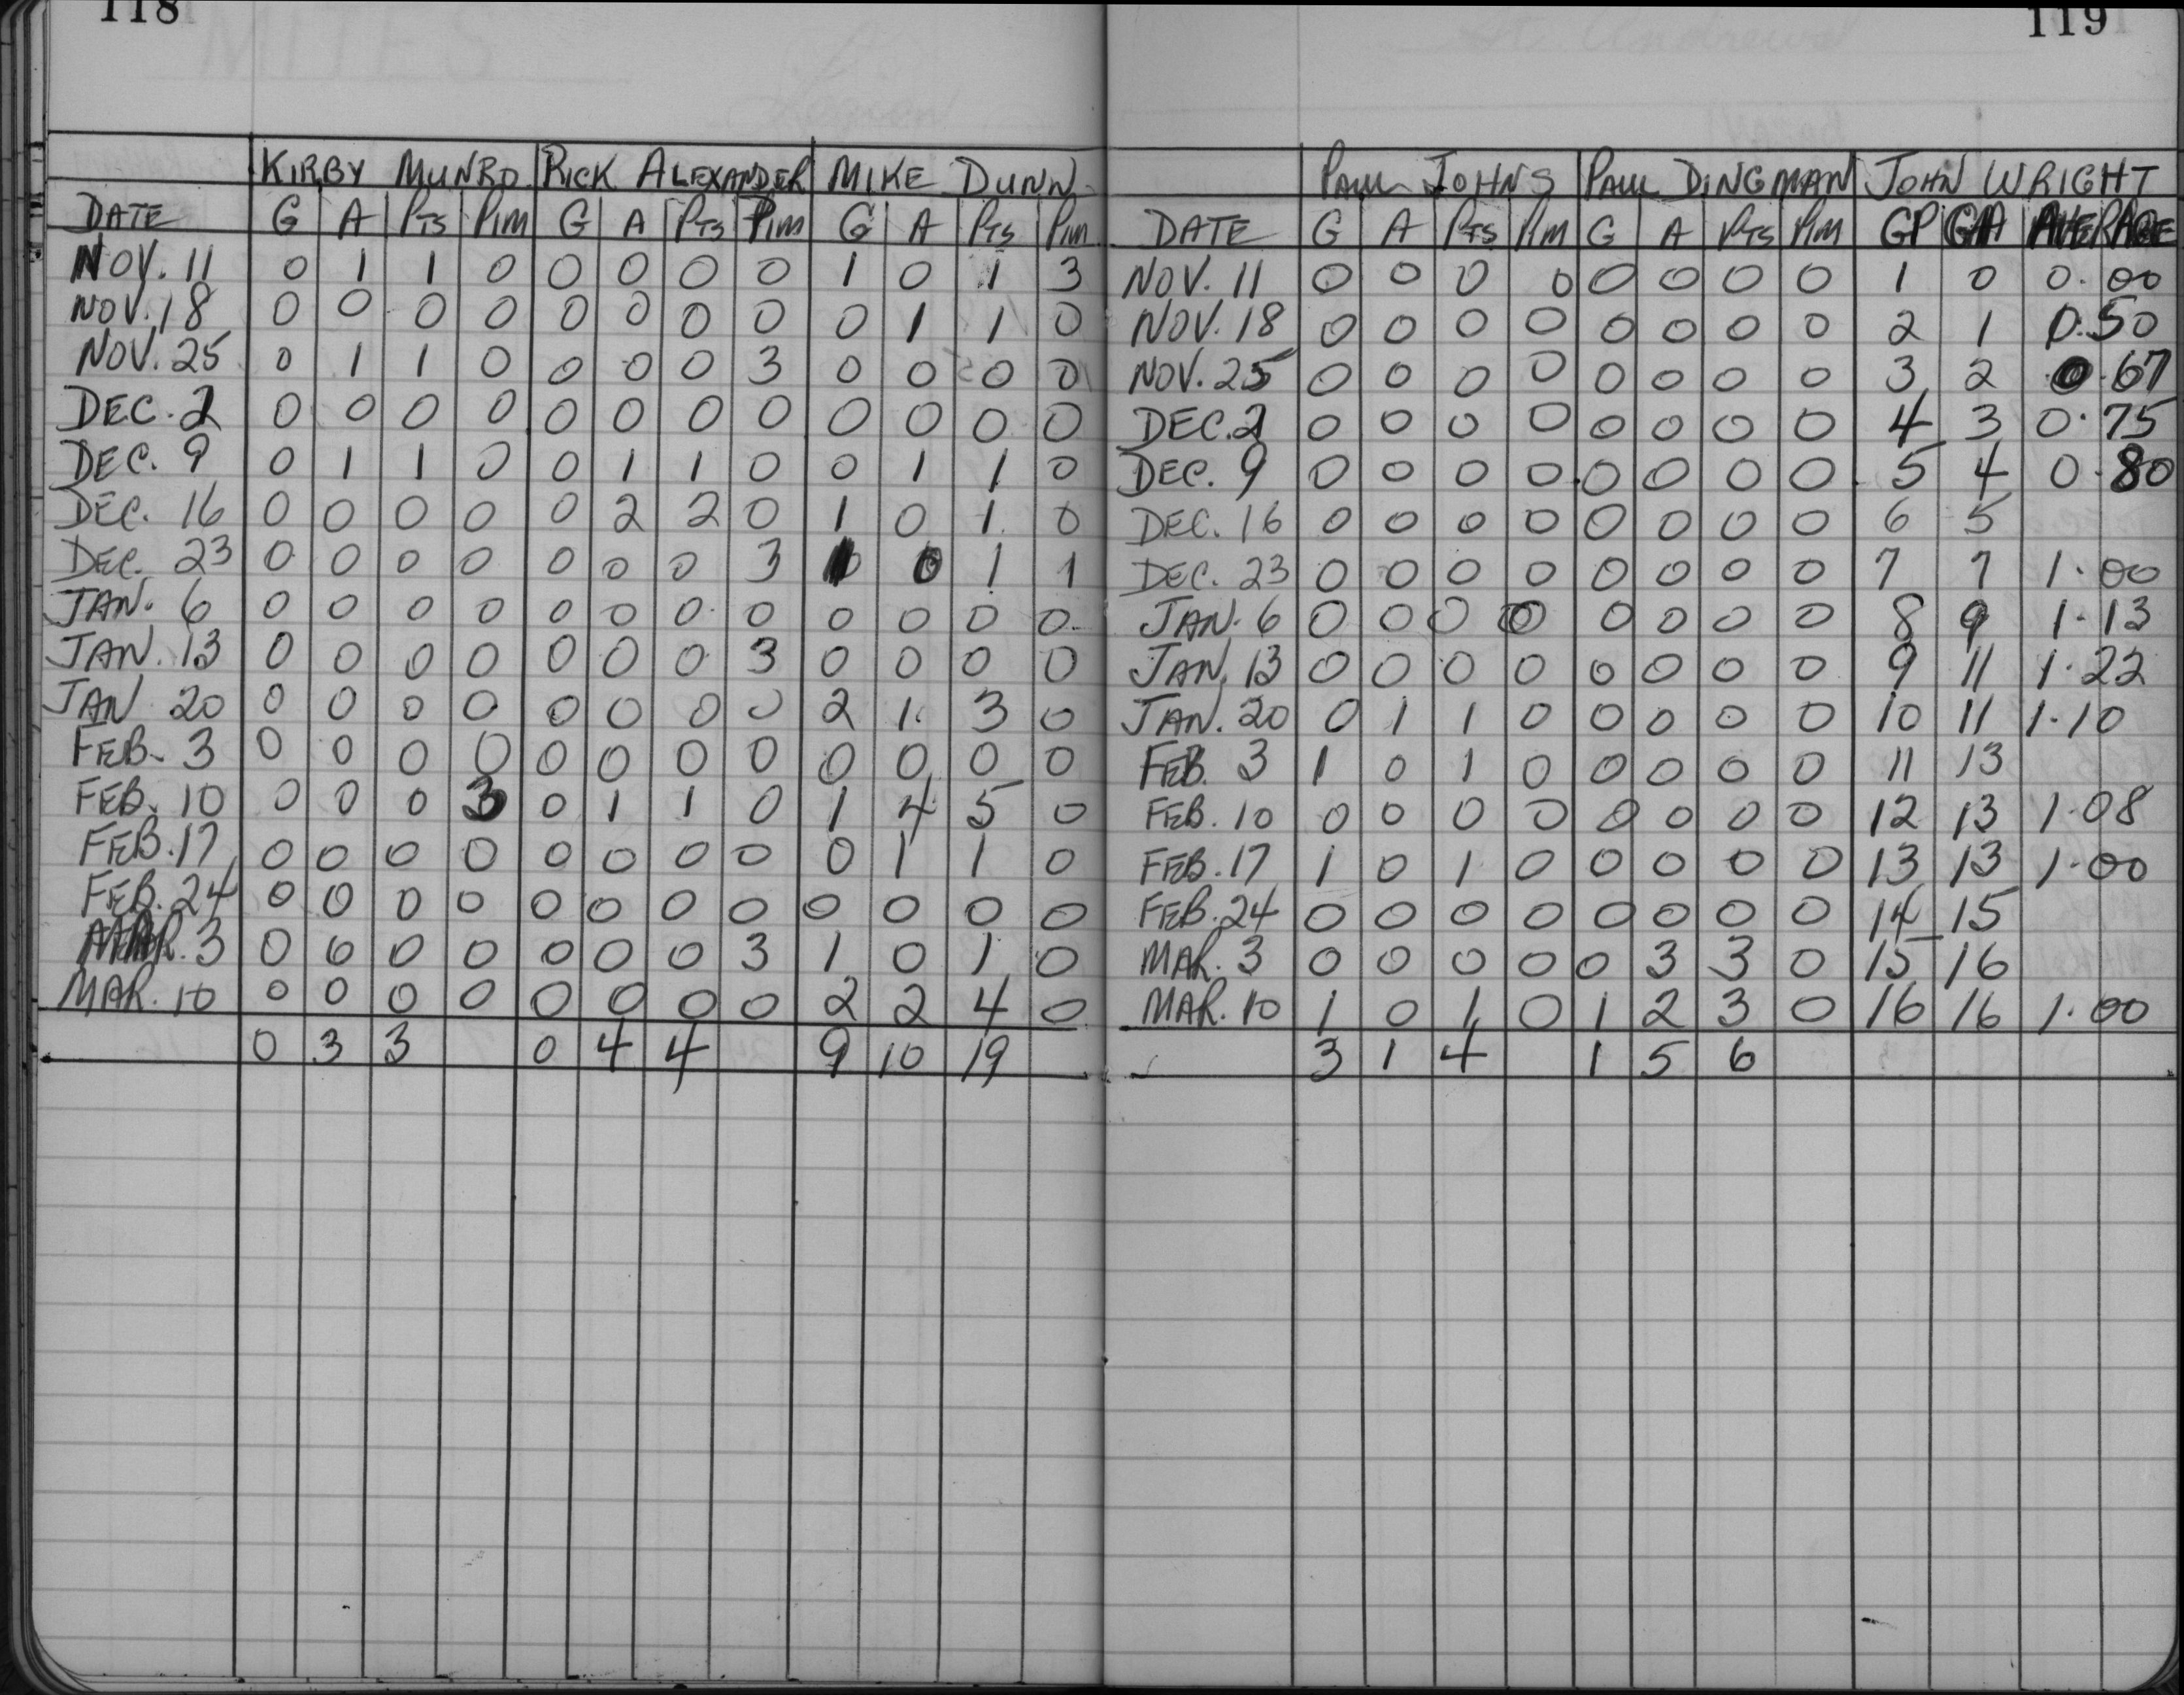 118
KIRBY MUNRO RICK ALEXANDER MIKE DUNN
DATE G A PTS PIM G A PTS PIM G A PTS PIM
NOV. 11 0 1 1 0 0 0 0 0 1 0 1 3
NOV. 18 0 0 0 0 0 0 0 0 0 1 1 0
NOV. 25 0 1 1 0 0 0 0 3 0 0 0 0
DEC. 2 0 0 0 0 0 0 0 0 0 0 0 0
DEC. 9 0 1 1 0 0 1 1 0 0 1 1 0
DEC. 16 0 0 0 0 0 2 2 0 1 0 1 0
DEC. 23 0 0 0 0 0 0 0 3 1 0 1 1
JAN. 6 0 0 0 0 0 0 0 0 0 0 0 0
JAN. 13 0 0 0 0 0 0 0 3 0 0 0 0
JAN 20 0 0 0 0 0 0 0 0 2 1 3 0
FEB. 3 0 0 0 0 0 0 0 0 0 0 0 0
FEB. 10 0 0 0 3 0 1 1 0 1 4 5 0
FEB. 17 0 0 0 0 0 0 0 0 0 1 1 0
FEB. 24 0 0 0 0 0 0 0 0 0 0 0 0
MAR. 3 0 0 0 0 0 0 0 3 1 0 1 0
MAR. 10 0 0 0 0 0 0 0 0 2 2 4 0
0 3 3 0 4 4 9 10 19
119
PAUL JOHNS PAUL DINGMAN JOHN WRIGHT
DATE G A PTS PIM G A PTS PIM GP GA AVERAGE
NOV. 11 0 0 0 0 0 0 0 0 1 0 0.00
NOV. 18 0 0 0 0 0 0 0 0 2 1 0.50
NOV. 25 0 0 0 0 0 0 0 0 3 2 0.67
DEC. 2 0 0 0 0 0 0 0 0 4 3 0.75
DEC. 9 0 0 0 0 0 0 0 0 5 4 0.80
DEC. 16 0 0 0 0 0 0 0 0 6 5
DEC. 23 0 0 0 0 0 0 0 0 7 7 1.00
JAN. 6 0 0 0 0 0 0 0 0 8 9 1.13
JAN. 13 0 0 0 0 0 0 0 0 9 11 1.22
JAN. 20 0 1 1 0 0 0 0 0 10 11 1.10
FEB. 3 1 0 1 0 0 0 0 0 11 13
FEB. 10 0 0 0 0 0 0 0 0 12 13 1.08
FEB. 17 1 0 1 0 0 0 0 0 13 13 1.00
FEB. 24 0 0 0 0 0 0 0 0 14 15
MAR. 3 0 0 0 0 0 3 3 0 15 16
MAR. 10 1 0 1 0 1 2 3 0 16 16 1.00
3 1 4 1 5 6